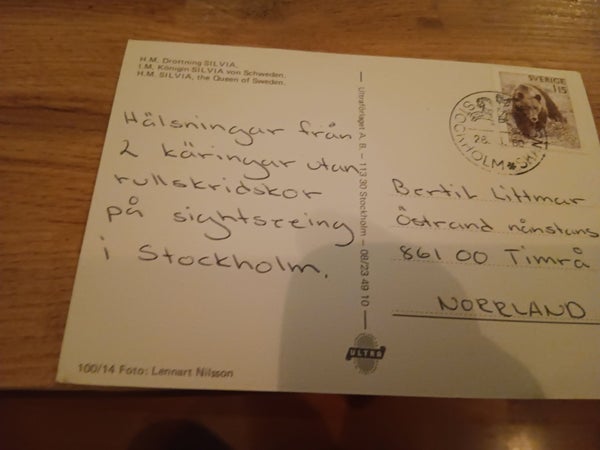 H.M. Drottning SILVIA.
I.M. Königin SILVIA von Schweden.
H.M. SILVIA, the Queen of Sweden.
Hälsningar från
2 käringar utan
rullskridskor
på sightseeing
i Stockholm.
100/14 Foto: Lennart Nilsson
Ultraförlaget A.B. – 113 30 Stockholm – 08/23 49 10
ULTRA
SVERIGE
115
STOCKHOLM
Bertil Littmar
Östrand nånstans
861 00 Timrå
NORRLAND